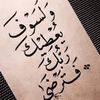 وَلَسَوْفَ
يُعْطِيكَ
رَبُّكَ
فَتَرْضَى